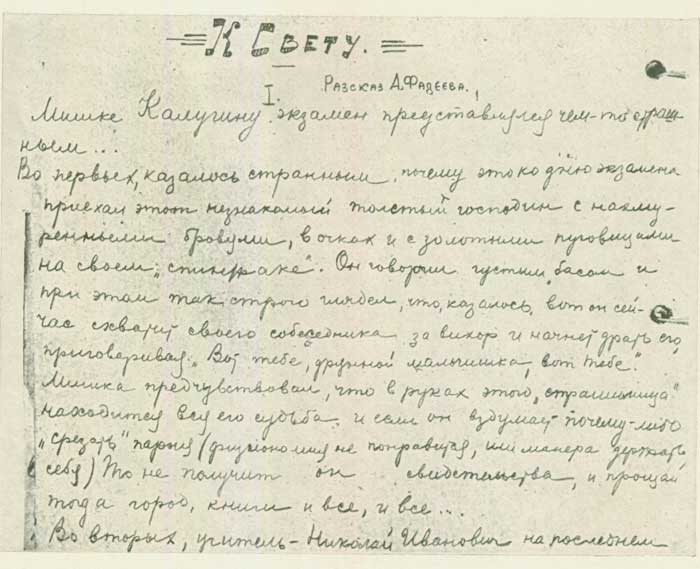 К Свету.
Рассказ А. Фадеева.
I.
Мишке Калугину экзамен представлялся чем-то страш-
ным...
Во первых, казалось странным, почему это ко дню экзамена
приехал этот незнакомый толстый господин с нахму-
ренными бровями, в очках и с золотыми пуговицами
на своем „спинжаке“. Он говорил густым басом и
при этом так строго глядел, что, казалось, вот он сей-
час схватит своего собеседника за вихор и начнет драть его,
приговаривая: „Вот тебе, дрянной мальчишка, вот тебе“.
Мишка предчувствовал, что в руках этого „страшилища“
находится вся его судьба и если он вздумает почему-либо
„срезать“ парня (физиономия не понравится, или манера держать
себя) то не получит он свидетельства, и прощай
тогда город, книги и все, и все...
Во вторых, учитель - Николай Иванович на последнем